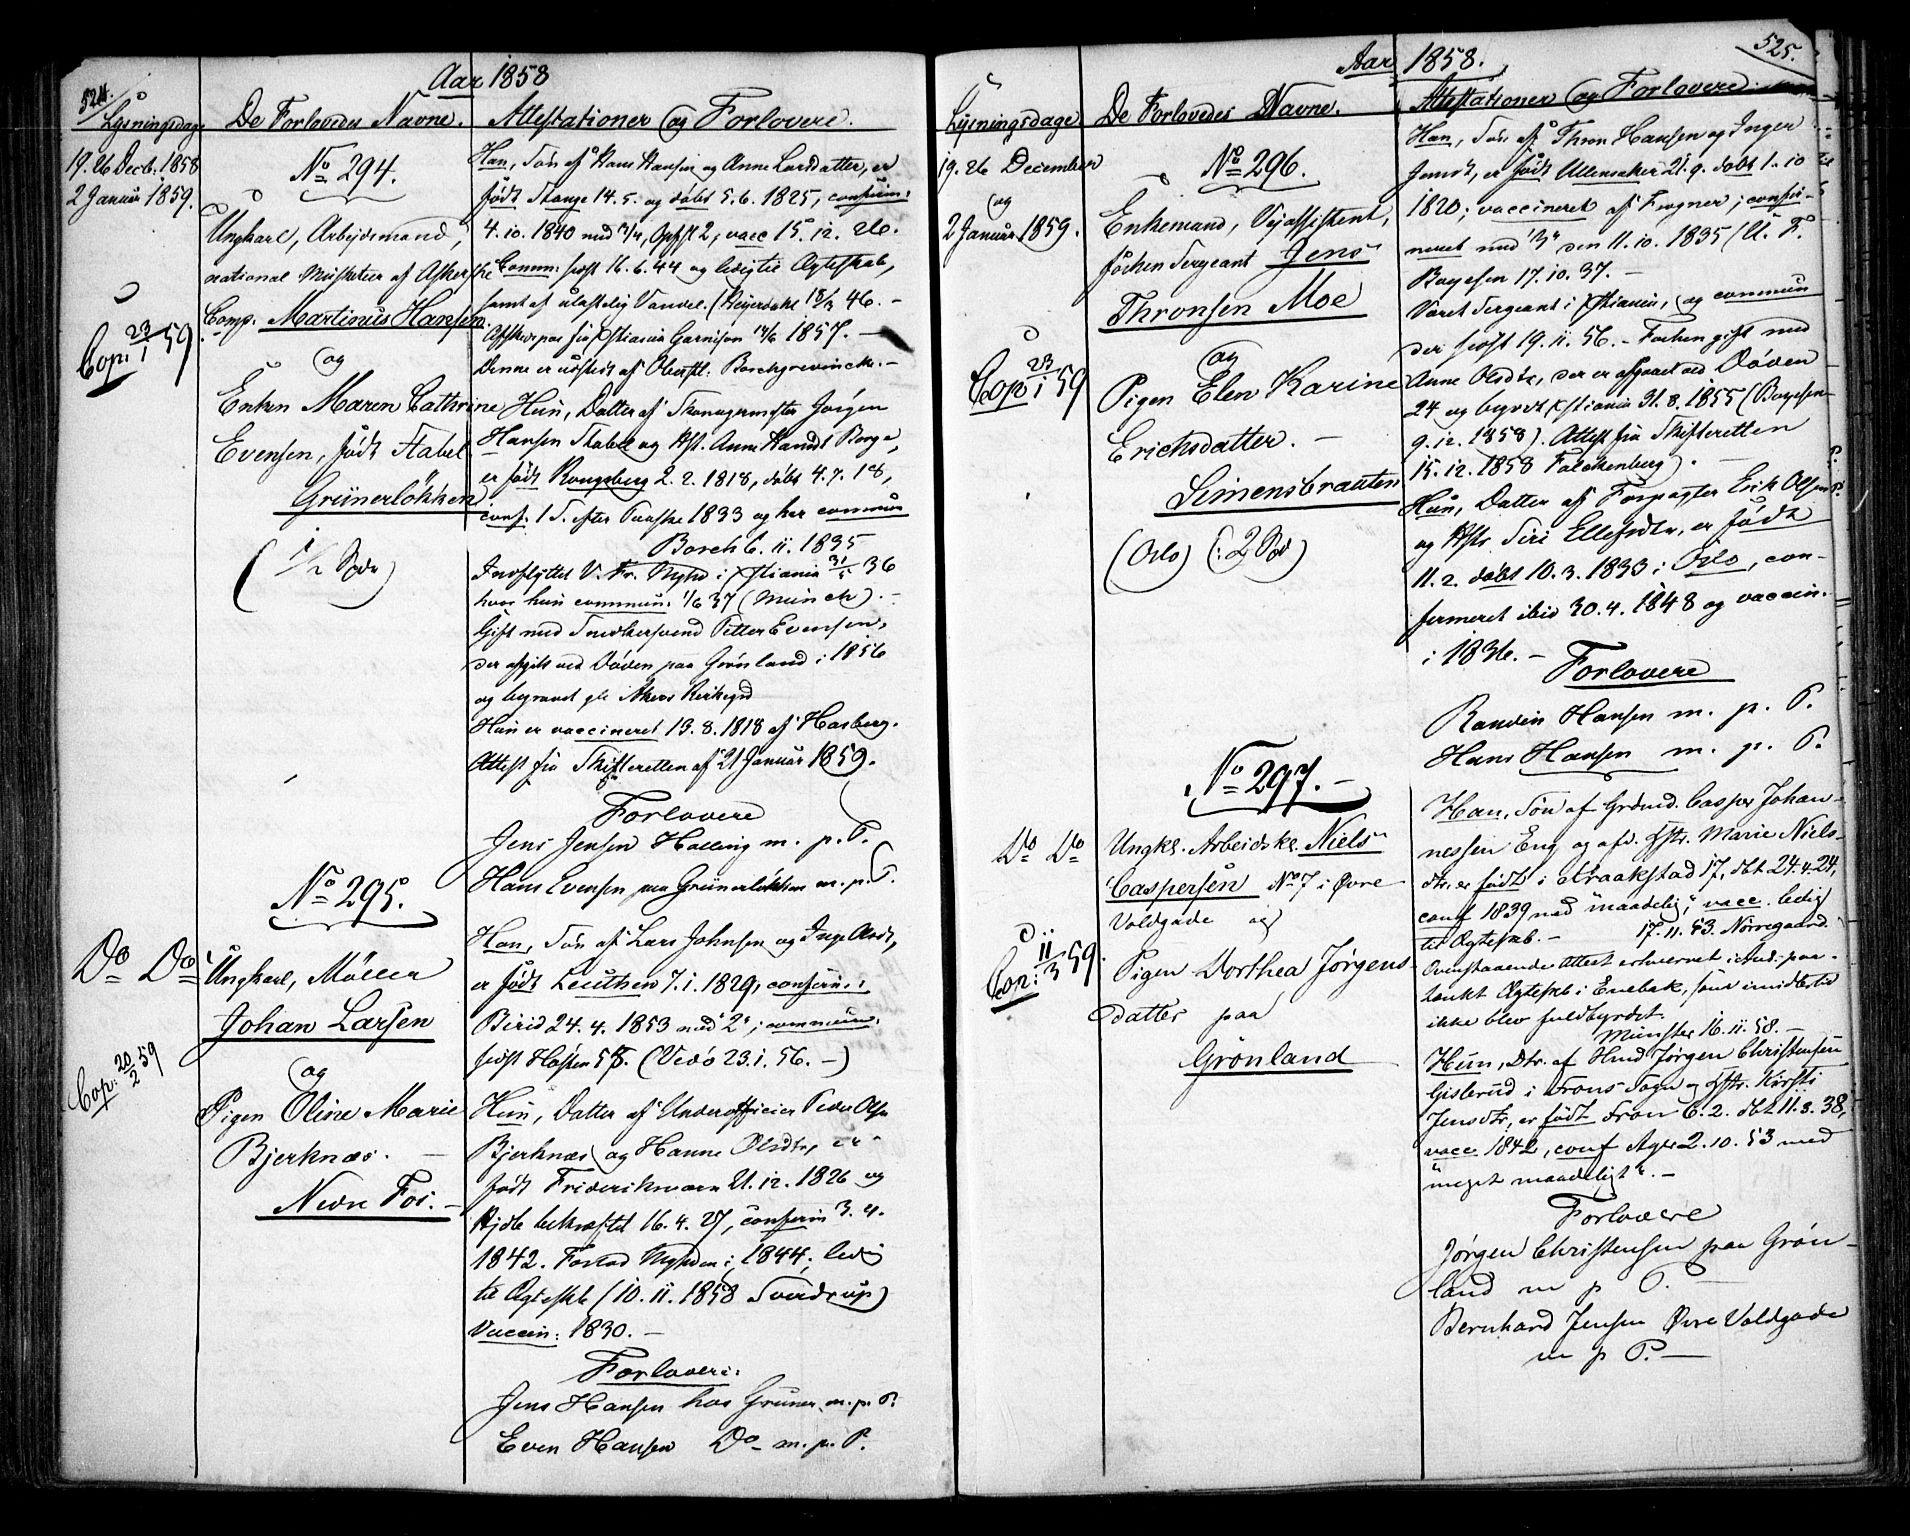 524.
Aar 1858
Lysningsdage
De Forlovedes Navne.
Attestationer og Forlovere.
19. 26 Decb. 1858
2 Januar 1859.
Cop. 23/1 59
No 294.
Ungkarl, Arbejdsmand,
national Musketeer af Akerske
Comp. Martinus Hansen
og
Enken Maren Cathrine
Evensen, født Stabel
Grünerløkken
(1/2 Spdr)
Han, Søn af Hans Hansen og Anne Larsdatter, er
født Stange 14. 5. og døbt 5. 6. 1825, confirm:
4. 10. 1840 med, vacc 15. 12. 26.
Comm: sidst 16. 6. 44 og ledig til Ægteskab,
samt af ulastelig Vandel. (Neyerdahl 15/3 46. -
Afskedspas fra Xstiania Garnison 14/6 1857. -
Denne er udstedt af Oberstl. Borchgrevinck. -
Hun, Datter af Jørgen
Hansen Stabel og Hst. Anne Randi Borge,
er født Kongsberg 2. 2. 1818, døbt 4. 7. 18,
conf. 1 S. efter Paaske 1833 og her commun
Borch 6. 11. 1835
Indflyttet V. Fr. Kirke i Xstiania 31/5 36
hvor hun commun. 1/6 37 (Munch). -
Gift med Snedkersvend Petter Evensen,
der afgik ved Døden paa Grønland i 1856
og begravet Akers Kirkegrd
Hun er vaccineret 13. 8. 1818 af Hasberg.
Attest fra Skifteretten af 21 Januar 1859.
Forlovere
Jens Jensen Halling m. p. P.
Hans Evensen paa Grünerløkken m. p. P.
Do Do
Cop: 20/2 59
No 295.
Ungkarl, Møller
Johan Larsen
og
Pigen Oline Marie
Bjerknæs. -
Nedre Fos. -
Han, Søn af Lars Johnsen og Inge Arsdt,
er født Leuthen 7. 1. 1829, confirm:
Birid 24. 4. 1853 med "2"; commun:
sidst Høsten 55. (Vedø 23. 1. 56. -)
Hun, Datter af Underofficier Peder Olsen
Bjerknæs og Hanne Olsdtr, er
født Frideriksværn 21. 12. 1826 og
Hjdb bekræftet 16. 4. 27, confirm 3. 4.
1842. Forlod Kirken i 1844; ledig
til Ægteskb (10. 11. 1858 Sverdrup)
Vaccin: 1830. -
Forlovere:
Jens Hansen hos Gruner m. p. P.
Even Hansen Do m. p. P.
525.
Aar 1858.
Lysningsdage
De Forlovedes Navne.
Attestationer og Forlovere.
19. 26 December
og
2 Januar 1859.
Cop 23/1 59
No 296.
Enkemand, Vejassistent,
forhen Sergeant Jens
Thronsen Moe
og
Pigen Elen Karine
Erichsdatter. -
Simensbraaten
(Oslo) (: 2 Spd)
Han, Søn af Thron Hansen og Inger
Jensdt, er født Ullensaker 21. 9. døbt 1. 10
1820; vaccineret af Frogner; confir-
meret med "3" den 11. 10. 1835 (U. F.
Bayesen 17. 10. 37. -
Været Sergeant i Xstiania, og commun
der sidst 19. 11. 56. - Forhen gift med
Anne Olsdtr, der er afgaaet ved Døden
24 og begrdt Xstiania 31. 8. 1855 (Bayesen
9. 12. 1858). Attest fra Skifteretten
15. 12. 1858 Falckenberg). -
Hun, Datter af Forpagter Erik Olsen
og Hstr Siri Ellefsdtr, er født
11. 2. døbt 10. 3. 1833 i Oslo, con-
firmeret ibid 30. 4. 1848 og vaccin.
i 1836. -
Forlovere
Randin Hansen m. p. P.
Hans Hansen m. p. P.
Do Do
Cop: 11/3 59.
No 297. -
Ungkl. Arbeidskl. Niels
Caspersen No 7 i Øvre
Voldgade og
Pigen Dorthea Jørgens-
datter paa
Grønland
Han, Søn af Grdmd. Casper Johan-
nessen Eng og afd. Hstr. Marie Niels-
dtr. er født i Kraakstad 17, dbt 24. 4. 24,
conf 1839 med "maadelig", vacc. ledig
til Ægteskb. - 17. 11. 53. Nörregaard.
Ovenstaaende Attest erhvervet i Anl. paa-
tænkt Ægteskb i Enebak, som imidlertid
ikke blev fuldbyrdet.
Münster 16. 11. 58. -
Hun, Dtr. af Hmd Jørgen Christensen
Gislerud i Frons Sogn og Hstr. Kirsti
Jensdtr, er født Fron 6. 2. dbt 11. 3. 38,
vacc 1842, conf Ager 2. 10. 53 med
"meget maadeligt". -
Forlovere
Jørgen Christensen paa Grøn-
land m p P. -
Bernhard Jensen Øvre Voldgade
m p P. -